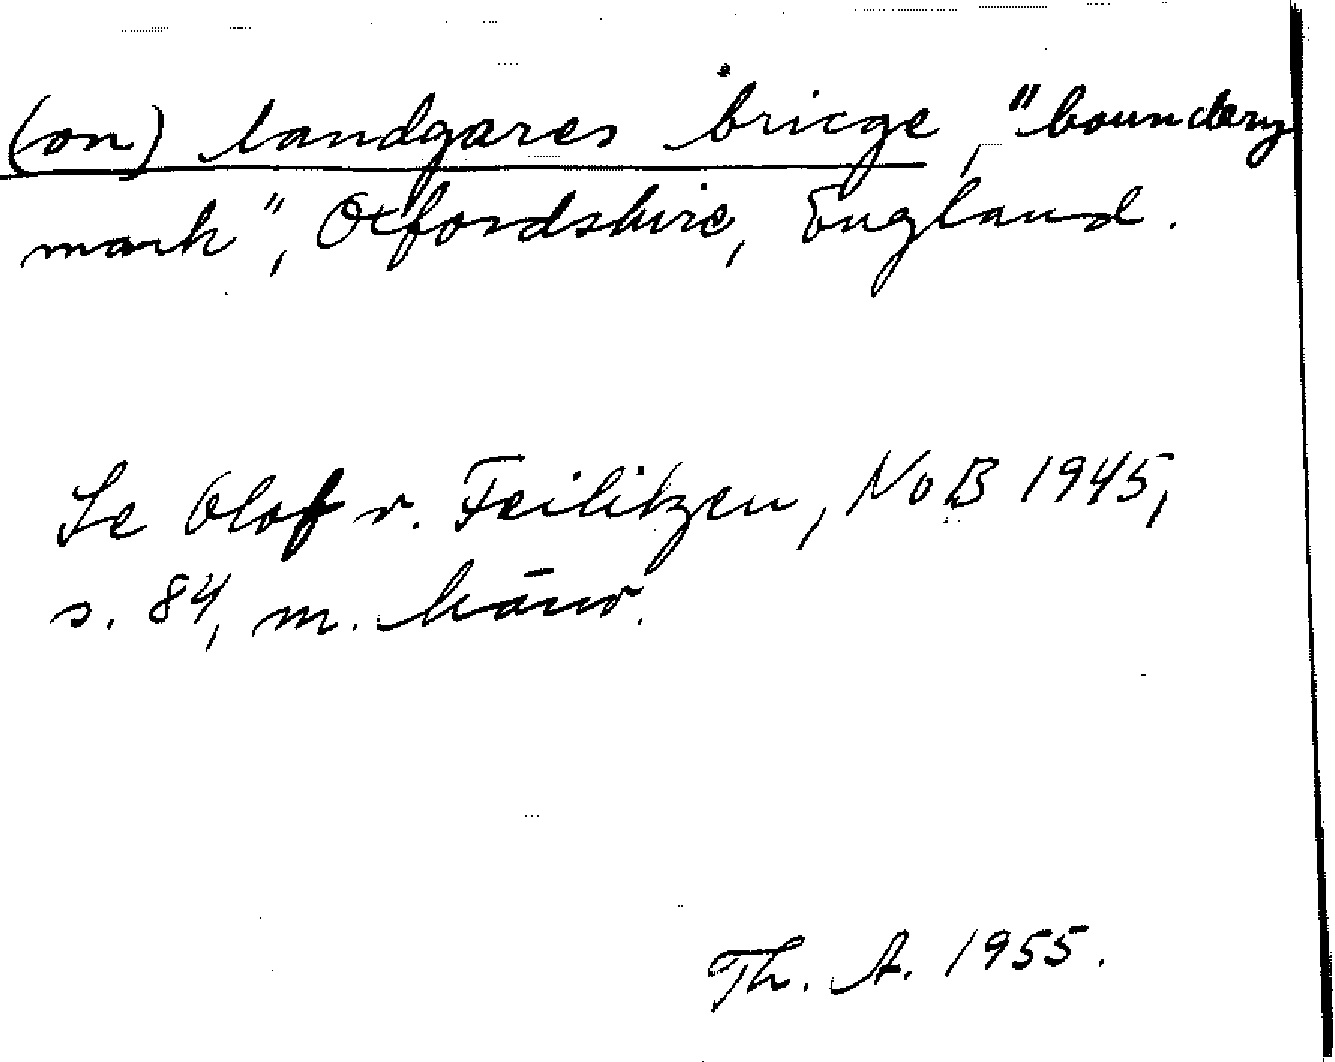 (on) landgares bricge, "boundery
mark", Oxfordshire, England.
Se Olof v. Feilitzen, NoB 1945,
s. 84, m. hänv.
Th. A. 1955.